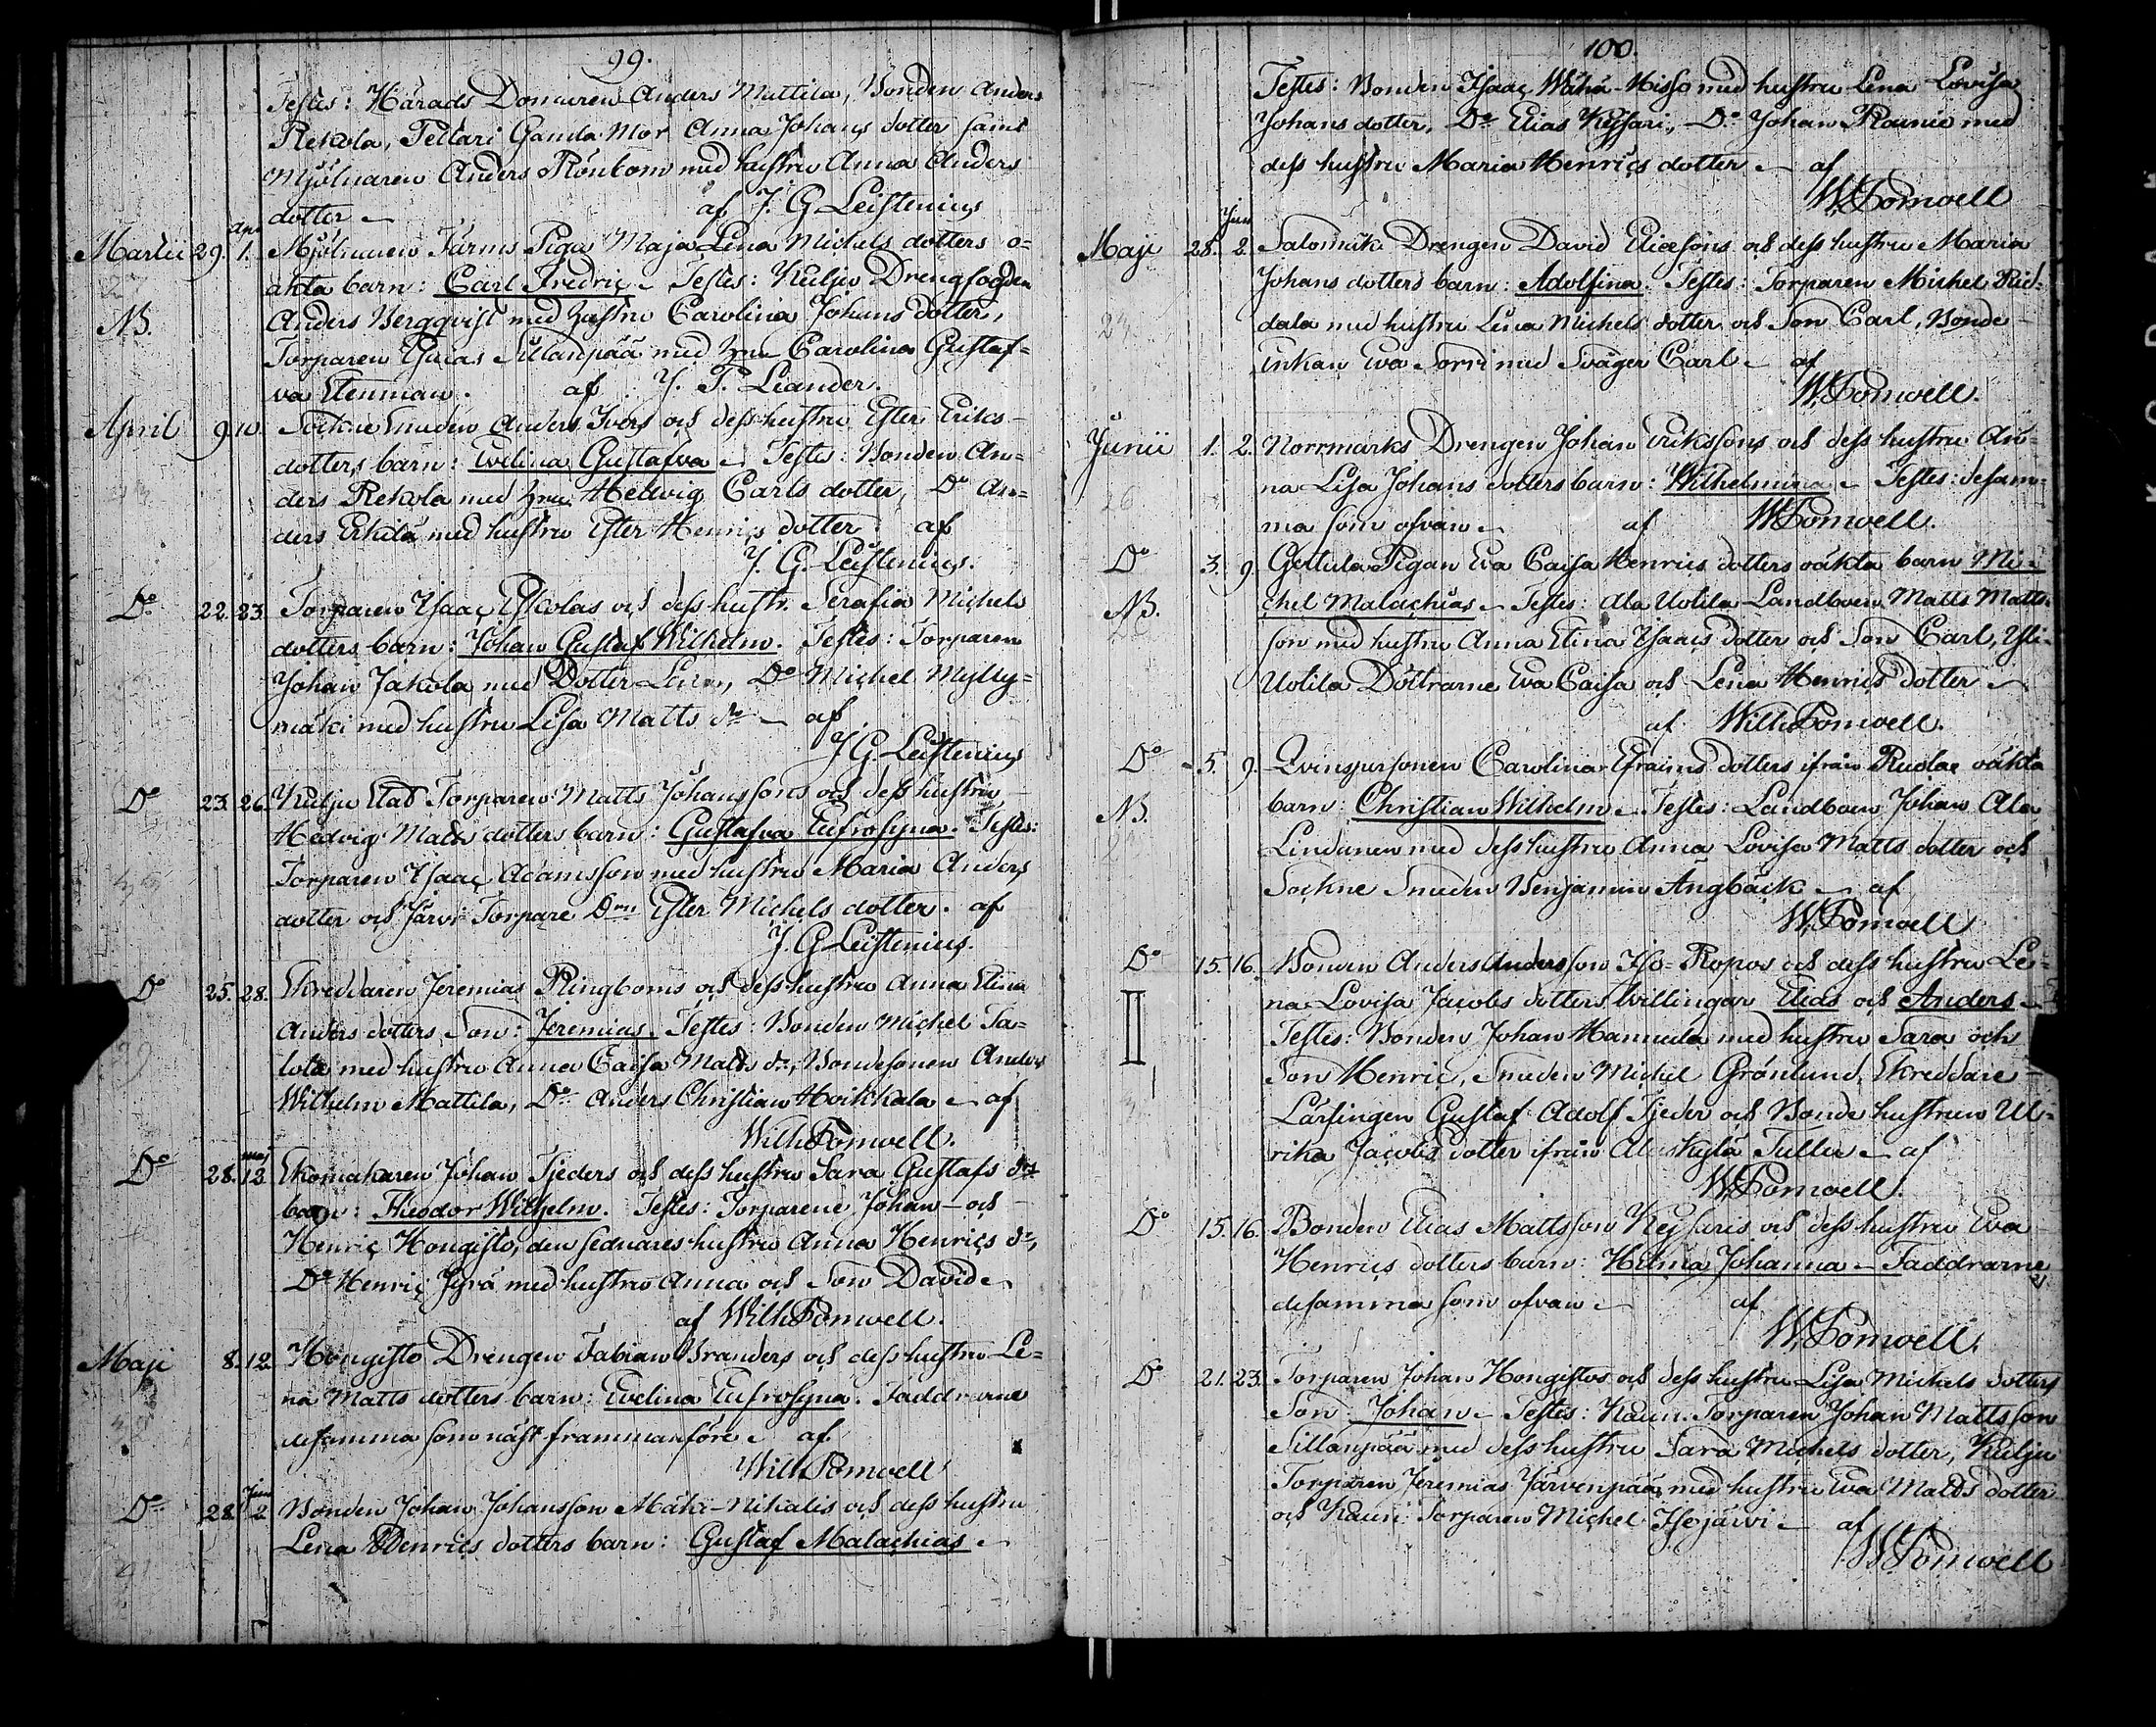 99.
Testes: Härads Domaren Anders Mattila, Bonden Anders
Rekola, Pellari Gamla Mor Anna Johans dotter samt
Mjölnaren Anders Rönbom med hustru Anna Anders
dotter – af J. G. Leistenius
Martii 29. Apr. 1. Mjölnaren Färms Piga Maja Lena Michels dotters o=
äkta barn: Carl Fredric – Testes: Kulju Drengfogden
NB. Anders Bergqvist med hustru Carolina Johans dotter,
Torparen Sillanpää med hru Carolina Gustaf=
va Stenman. af J. P. Leander.
April 9. 10. Smeden Anders Ivers och dess hustru Ester Eriks-
dotters barn: Evelina Gustafva – Testes: Bonden An=
ders Rekola med hru Hedvig Carls dotter, Do An=
ders Erkilä med hustru Ester Henrics dotter. af
J. G. Leistenius.
Do 22. 23. Torparen Isaac Eskolas och dess hustr. Serafia Michels
dotters barn: Johan Gustaf Wilhelm. Testes: Torparen
Johan Jakola med Dotter Lena, Do Michel Mylly=
mäki med hustru Lisa Matts dr – af
J G. Leistenius
Do 23. 26. Kulju Stad Torparen Matts Johanssons och dess hustru
Hedvig Matts dotters barn: Gustafva Eufrosyna. Testes:
Torparen Isaac Adamsson med hustru Maria Anders
dotter och Järvi Torpare Ester Michels dotter. af
J. G Leistenius.
Do 25. 28. Skreddaren Jeremias Ringboms och dess hustru Anna Stina
Anders dotters Son: Jeremias. Testes: Bonden Michel Ta=
lola med hustru Anna Caisa Matts dr, Bondesonen Anders
Wilhelm Mattila, Do Anders Christian Hoikkala – af
Wilh Pomoell.
Do 28. maj 12 Skomakaren Johan Tjeders och dess hustru Sara Gustafs drs
barn: Theodor Wilhelm. Testes: Torparene Johan – och
Henric Hongisto, den sednares hustru Anna Henrics dr,
Do Henric Jyrä med hustru Anna och Son David –
af Wilh Pomoell.
Maji 8. 12 Hongisto Drengen Fabian Branders och dess hustru Le=
na Matts dotters barn: Evelina Eufrosyna. Faddrarne
desamma som näst frammanföre – af
Wilh Pomoell
Do 28. Jun 2 Bonden Johan Johansson Mäki-Nikalis och dess hustru
Lena Henrics dotters barn: Gustaf Malachias –
100.
Testes: Bonden Isaac Wähä-Hisso med hustru Lena Lovisa
Johans dotter, Do Elias Keysari, Do Johan Raunio med
dess hustru Maria Henrics dotter – af
W. Pomoell
Maji 28. Jun 2. Salomäki Drengen David Eliæsons och dess hustru Maria
Johans dotters barn: Adolfina. Testes: Torparen Michel
dala med hustru Lena Michels dotter och Son Carl, Bonde
Enkan Eva Sorri med Svåger Carl – af
W. Pomoell.
Junii 1. 2. Norrmarks Drengen Johan Erikssons och dess hustru An=
na Lisa Johans dotters barn: Wilhelmina – Testes: desam=
ma som ofvan – af W. Pomoell.
Do 3. 9. Gettula Pigan Eva Caisa Henrics dotters oäkta barn Mi=
NB. chel Malachias – Testes: Ala Uotila Landboen Matts Matts=
son med hustru Anna Stina Isaacs dotter och Son Carl, Yli=
Uotila Döttrarne Eva Caisa och Lena Henrics dotter –
af Wilh. Pomoell.
Do 5. 9. Qvinspersonen Carolina Efraims dotters ifrån oäkta
NB. barn: Christian Wilhelm – Testes: Landboen Johan Ala
Lindanen med dess hustru Anna Lovisa Matts dotter och
Sockne Smeden Benjamin Ängbäck – af
W. Pomoell
Do 15. 16. Bonden Anders Andersson Iso-Ropos och dess hustru Le=
na Lovisa Jacobs dotters tvillingar Elias och Anders –
II Testes: Bonden Johan Hannula med hustru Sara och
Son Henric, Smeden Michel Grönlund, Skreddare
Lärlingen Gustaf Adolf Tjeder och Bonde hustrun Ul=
rika Jacobs dotter ifrån Alaskylä Tullu – af
W. Pomoell.
Do 15. 16. Bonden Elias Mattsson Keysaris och dess hustru Eva
Henrics dotters barn: Helma Johanna – Faddrarne
desamma som ofvan – af
W. Pomoell.
Do 21. 23. Torparen Johan Hongistos och dess hustru Lisa Michels dotters
Son: Johan – Testes: Kaun. Torparen Johan Mattsson
Sillanpää med dess hustru Sara Michels dotter, Kulju
Torparen Jeremias Järvenpää med hustru Eva Matts dotter
och Kauni Torparen Michel Isojärvi – af
W. Pomoell